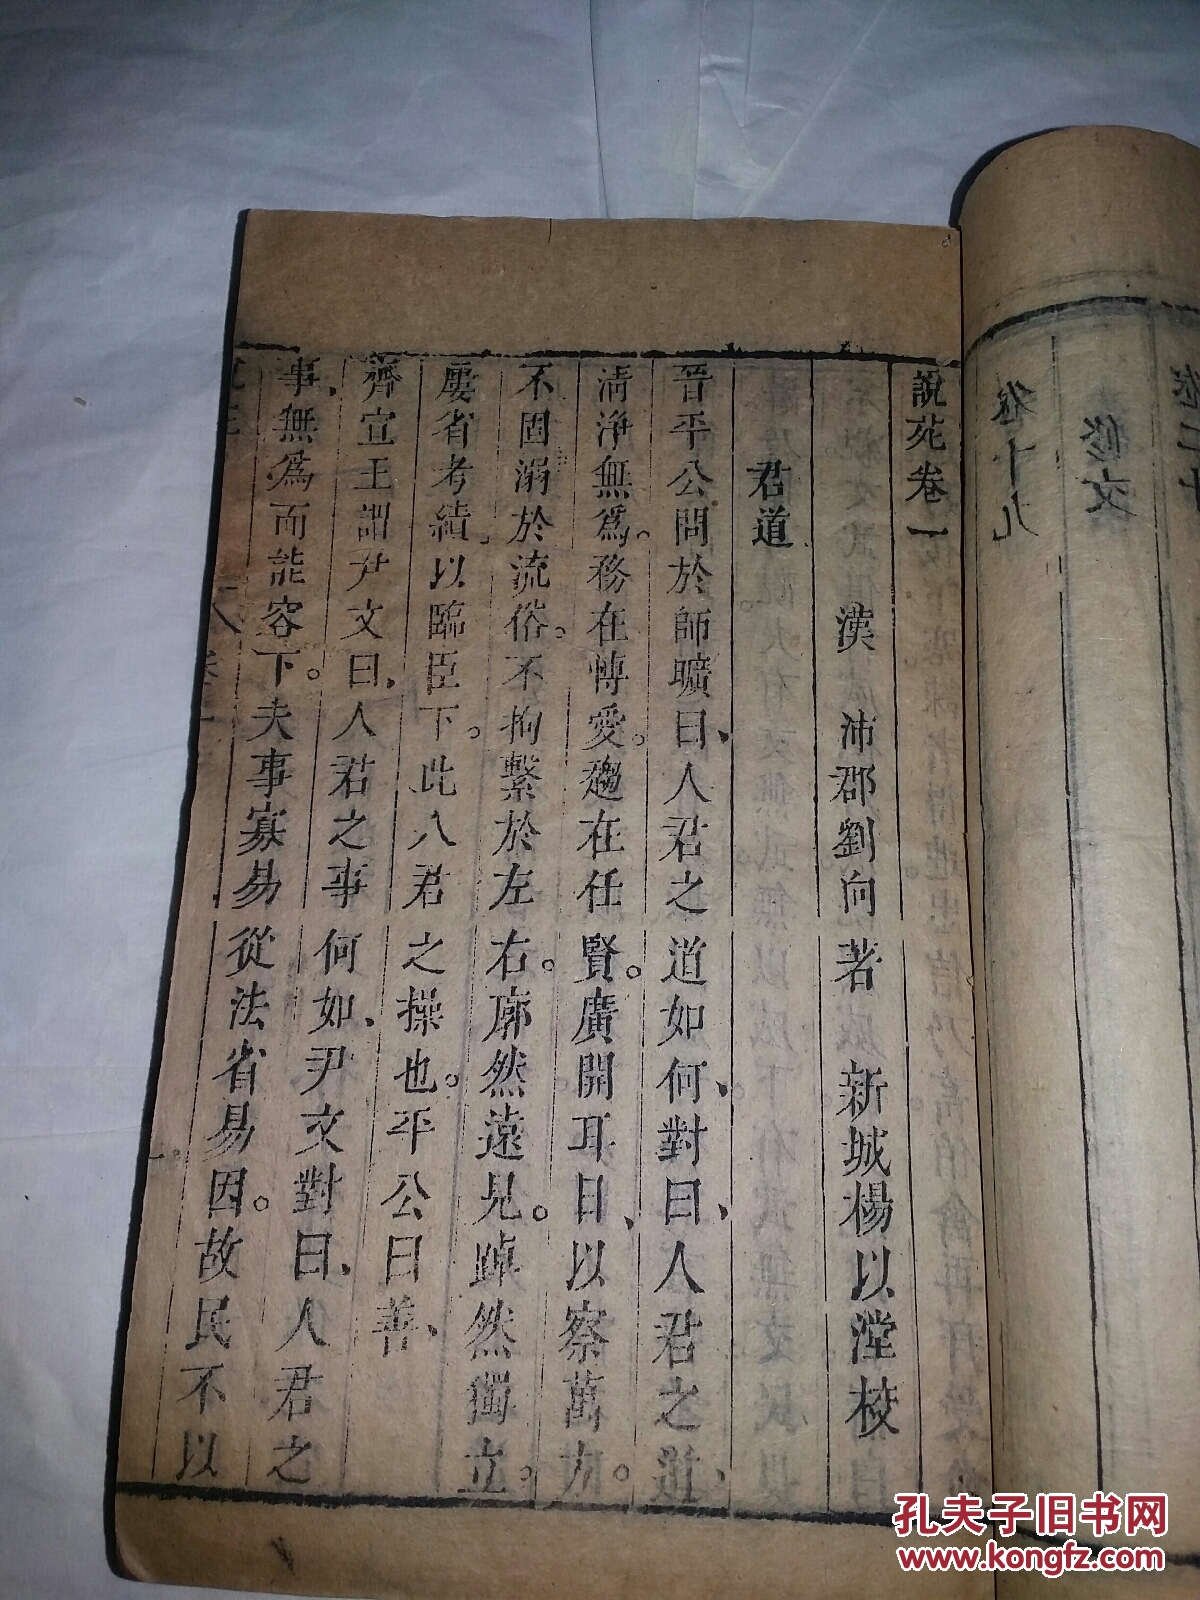 卷二十
修文
卷十九
說苑卷一
漢 沛郡劉向著 新城楊以漟校
君道
晉平公問於師曠曰、人君之道如何、對曰、人君之道、
淸淨無爲。務在博愛。趨在任賢。廣開耳目、以察萬方。
不固溺於流俗。不拘繫於左右。廓然遠見。踔然獨立。
屢省考績以臨臣下。此人君之操也。平公曰善、
齊宣王謂尹文曰、人君之事何如、尹文對曰、人君之
事、無爲而能容下。夫事寡易從法省易因。故民不以
卷一
一
孔夫子旧书网
www.kongfz.com